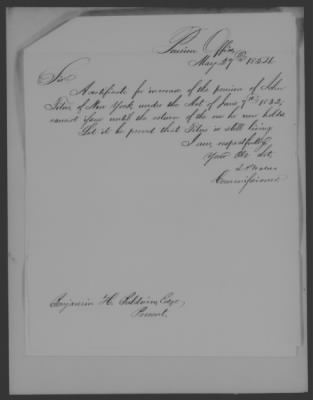 Pension Office
May 27th 1854.
Sir
A certificate for increase of the pension of John
Titus, of New York under the Act of June 7th 1832,
cannot issue until the return of the one he now holds.
Let it be proved that Titus is still living.
I am, respectfully
Your Obt. Sert.
Commissioner.
Benjamin H. Baldwin, Esqr.
Present.